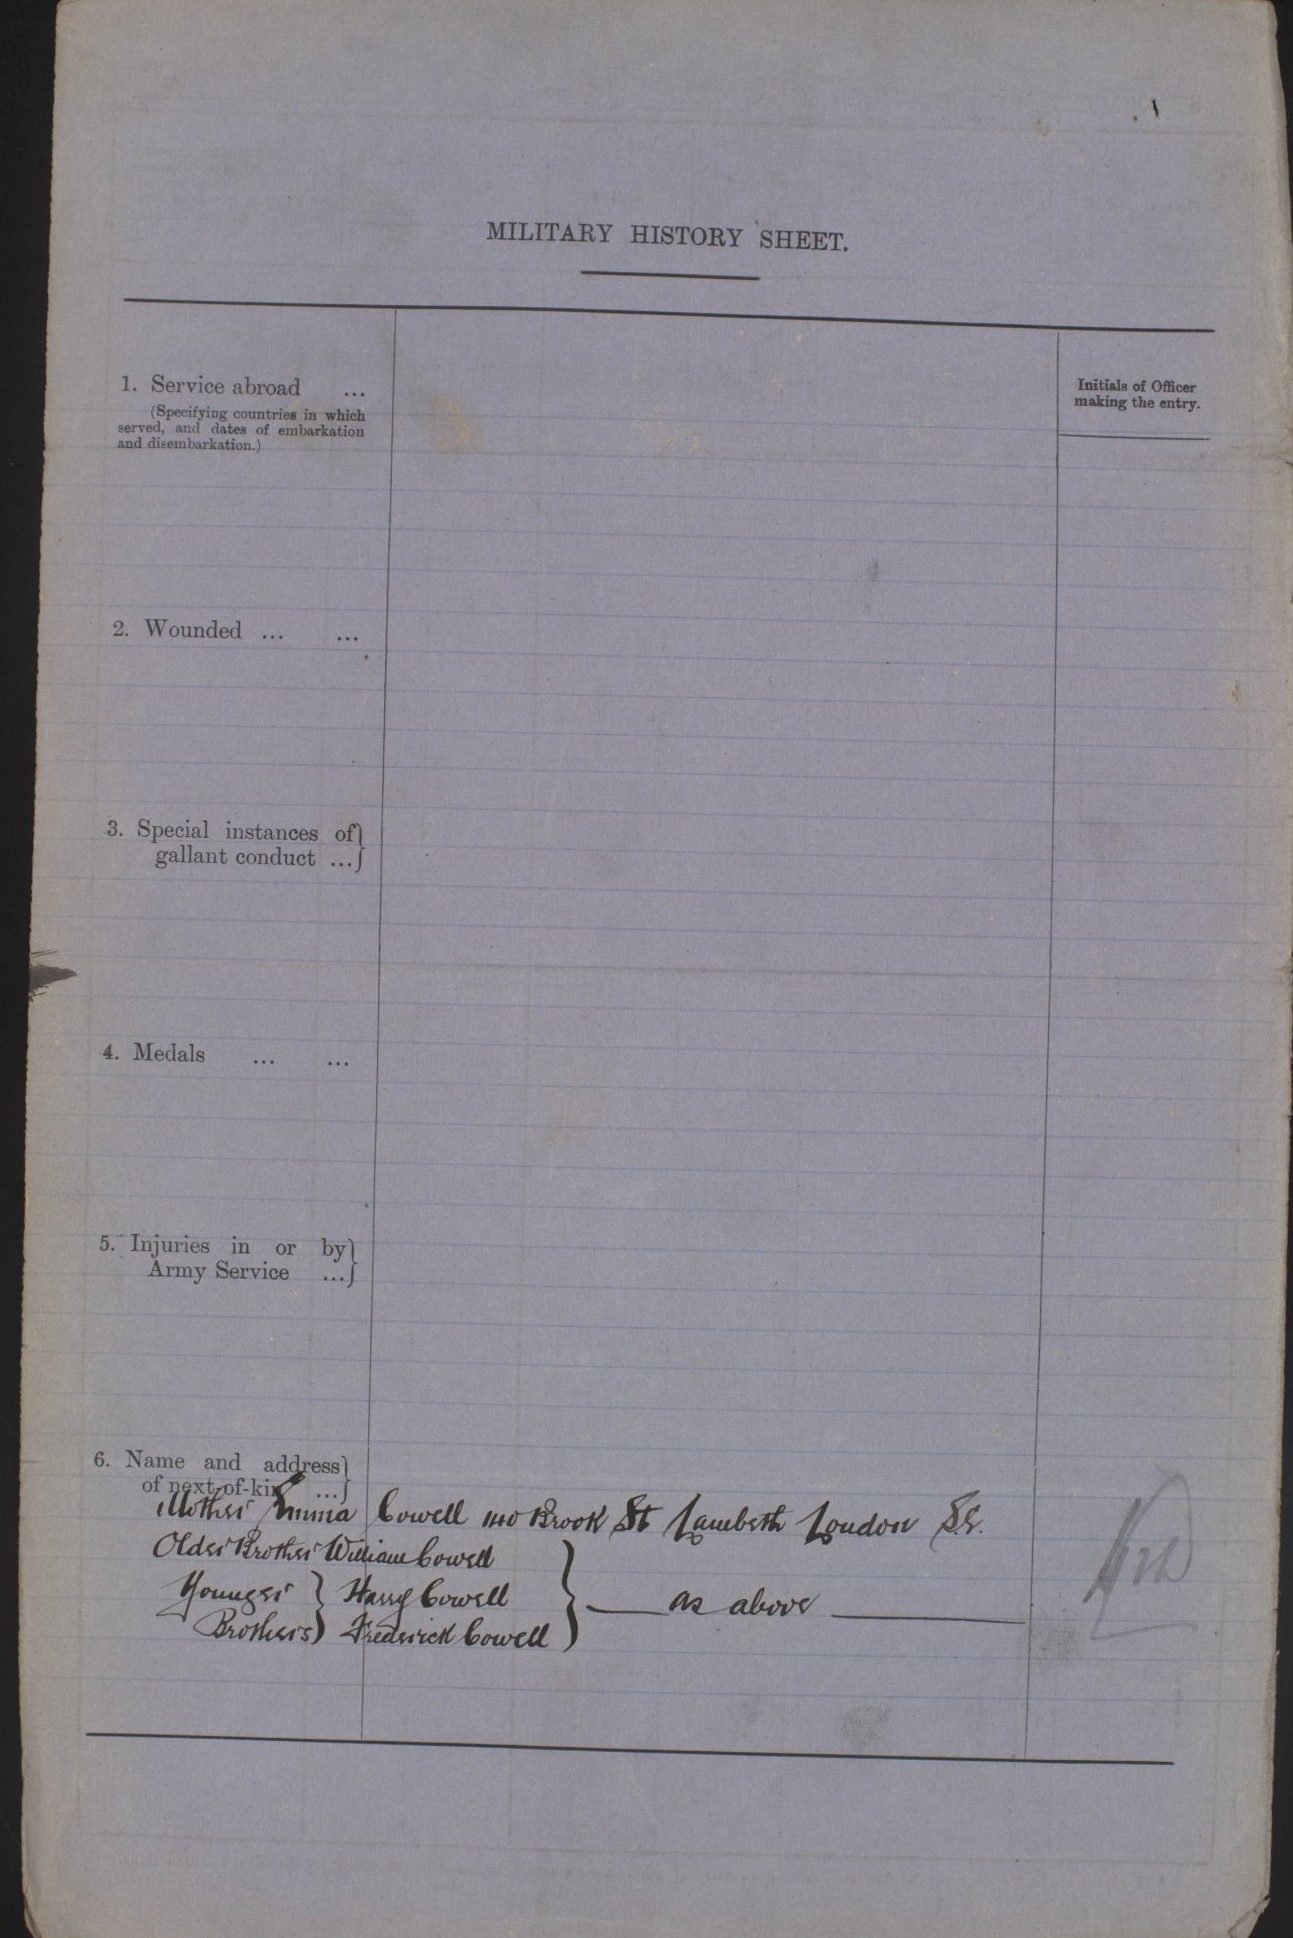 MILITARY HISTORY SHEET.
1. Service abroad ...
(Specifying countries in which
served, and dates of embarkation
and disembarkation.)
Initials of Officer
making the entry.
2. Wounded ... ...
3. Special instances of}
gallant conduct ...}
4. Medals ... ...
5. Injuries in or by}
Army Service ...}
6. Name and address}
of next-of-kin ...}
Mother Emma Cowell 140 Brook St Lambeth London S.E.
Older Brother William Cowell
Younger } Harry Cowell } — as above —
Brothers } Frederick Cowell